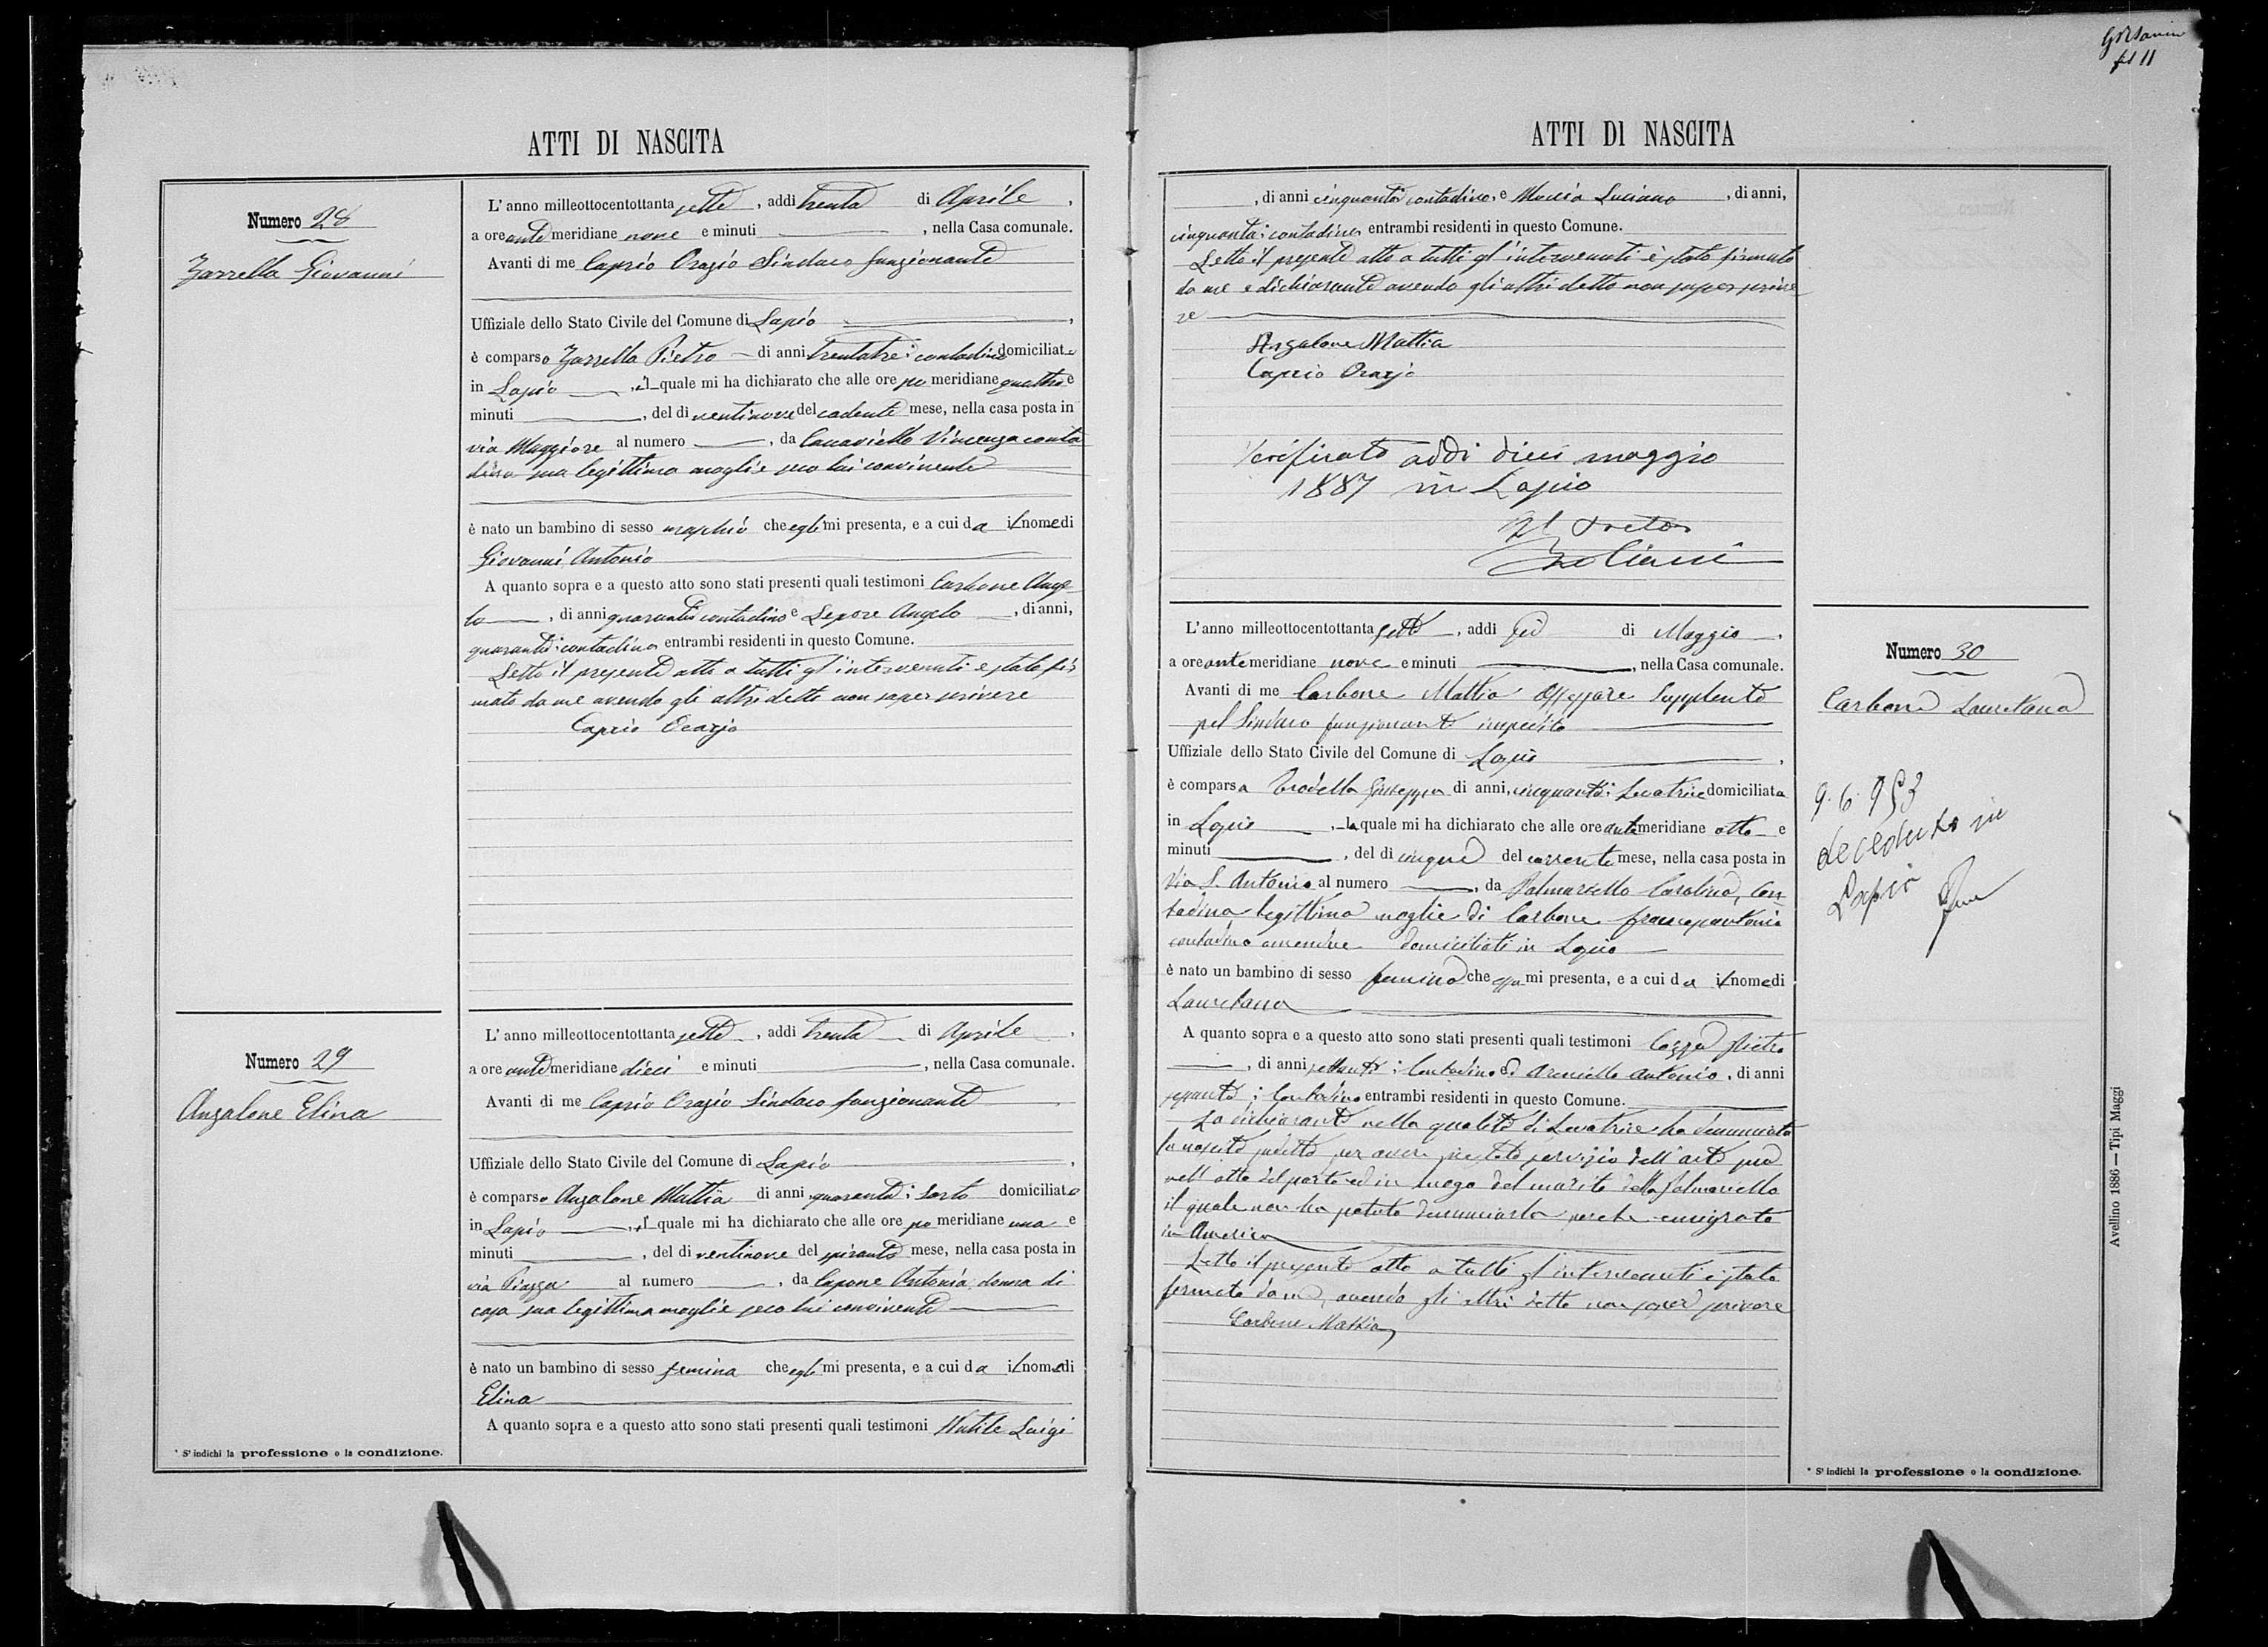 ATTI DI NASCITA
Numero 28
Zarrella Giovanni
L'anno milleottocentottanta sette, addì trenta di Aprile,
a ore anti meridiane nove e minuti, nella Casa comunale.
Avanti di me Caprio Orazio Sindaco funzionante
Uffiziale dello Stato Civile del Comune di Lapio,
è comparso Zarrella Pietro di anni trentatre: contadino domiciliato
in Lapio, il quale mi ha dichiarato che alle ore po meridiane quattro e
minuti, del dì ventinove del cadente mese, nella casa posta in
via Maggiore al numero, da Vincenza conta
dina sua legittima moglie seco lui convivente
è nato un bambino di sesso maschio che egli mi presenta, e a cui da il nome di
Giovanni Antonio
A quanto sopra e a questo atto sono stati presenti quali testimoni Carbone Ange
lo, di anni quaranta contadino e Lepore Angelo, di anni,
quaranta: contadino entrambi residenti in questo Comune.
Letto il presente atto a tutti gl'intervenuti è stato fir
mato da me avendo gli altri detto non saper scrivere
Caprio Orazio
Numero 29
Anzalone Elina
L'anno milleottocentottanta sette, addì trenta di Aprile,
a ore anti meridiane dieci e minuti, nella Casa comunale.
Avanti di me Caprio Orazio Sindaco funzionante
Uffiziale dello Stato Civile del Comune di Lapio,
è comparso Anzalone Mattia di anni quaranta: Sarto domiciliato
in Lapio, il quale mi ha dichiarato che alle ore po meridiane una e
minuti, del dì ventinove del spirante mese, nella casa posta in
via Piazza al numero, da Capone Antonia donna di
casa sua legittima moglie seco lui convivente
è nato un bambino di sesso femina che egli mi presenta, e a cui da il nome di
Elina
A quanto sopra e a questo atto sono stati presenti quali testimoni Luigi
* Si indichi la professione o la condizione.
ATTI DI NASCITA
, di anni cinquanta contadino, e Luciano, di anni,
cinquanta: contadino entrambi residenti in questo Comune.
Letto il presente atto a tutti gl'intervenuti è stato firmato
da me e dichiarante avendo gli altri detto non saper scrive
re
Anzalone Mattia
Caprio Orazio
Verificato addì dieci maggio
1887 in Lapio
Il Pretore
L'anno milleottocentottanta sette, addì sei di Maggio,
a ore anti meridiane nove e minuti, nella Casa comunale.
Avanti di me Carbone Mattia Assessore Supplente
pel Sindaco funzionante impedito
Uffiziale dello Stato Civile del Comune di Lapio,
è comparsa Giuseppa di anni, cinquanta: Levatrice domiciliata
in Lapio, la quale mi ha dichiarato che alle ore anti meridiane otto e
minuti, del dì cinque del corrente mese, nella casa posta in
Via S. Antonio al numero, da Palmariello Carolina, con
tadina legittima moglie di Carbone Francesantonio
contadino amendue domiciliati in Lapio
è nato un bambino di sesso femina che essa mi presenta, e a cui da il nome di
Lauretana
A quanto sopra e a questo atto sono stati presenti quali testimoni Cozza Pietro
, di anni settanta: Contadino ed Antonio, di anni
sessanta; Contadino entrambi residenti in questo Comune.
La dichiarante nella qualità di Levatrice ha denunciato
la nascita suddetta per avere prestato servizio dell'arte sua
nell'atto del parto ed in luogo del marito della Palmariello
il quale non ha potuto denunciarla perché emigrato
in America
Letto il presente atto a tutti gl'intervenuti è stato
firmato da me, avendo gli altri detto non saper scrivere
Carbone Mattia
Numero 30
Carbone Lauretana
9.6.953
deceduta in
Lapio
* Si indichi la professione o la condizione.
Avellino 1886 — Tipi Maggi